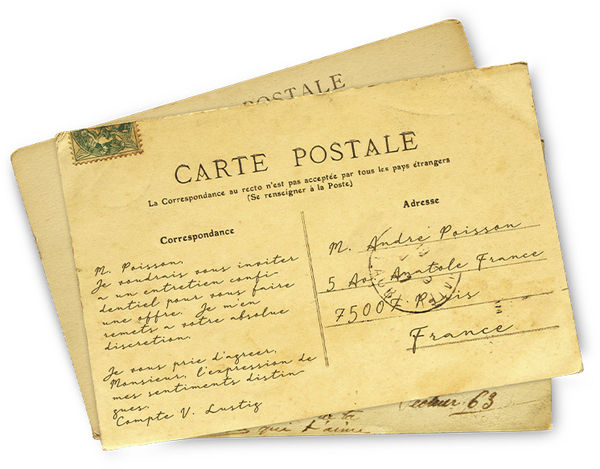 POSTALE
CARTE POSTALE
La Correspondance au recto n'est pas acceptée par tous les pays étrangers
(Se renseigner à la Poste)
Correspondance
M. Poisson,
Je voudrais vous inviter
a un entretien confi-
dentiel pour vous faire
une offre. Je m'en
remets a votre absolue
discretion.
Je vous prie d'agreer,
Monsieur, l'expression de
mes sentiments distin
gues,
Compte V. Lustig
Adresse
M. André Poisson
5 Av. Anatole France
75007 Paris
France
63